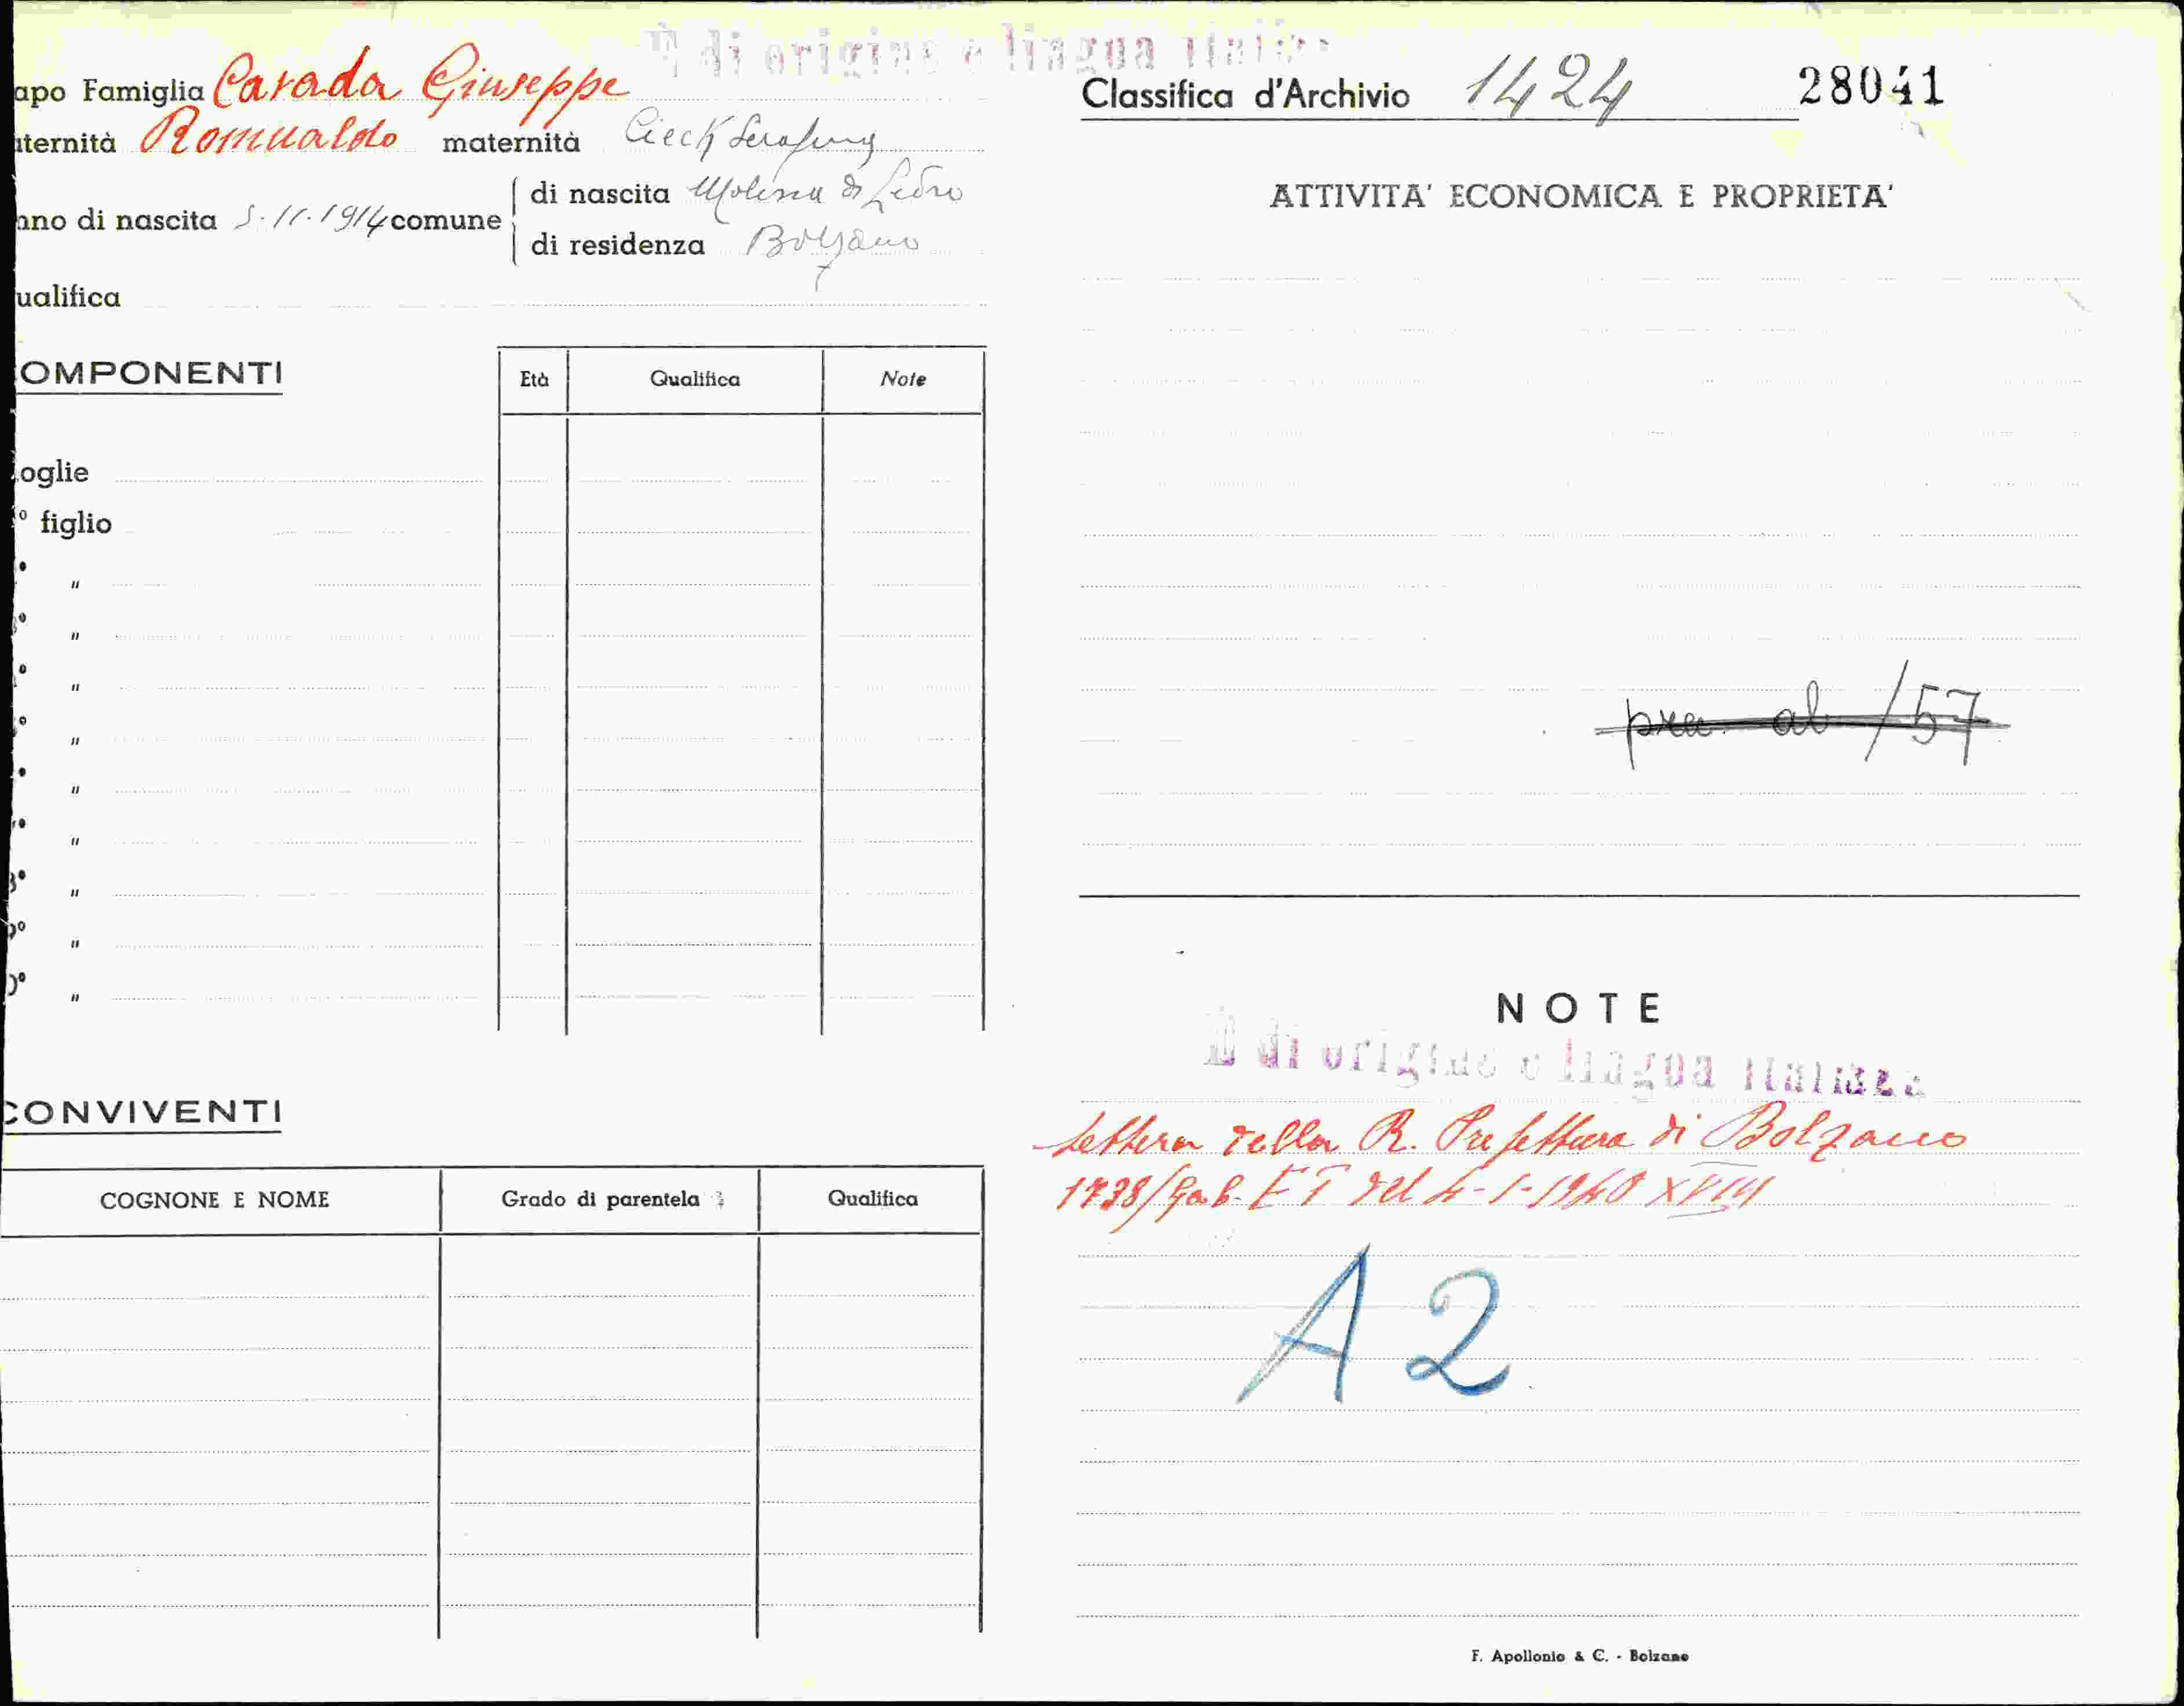 E di origine o lingua italiana
apo Famiglia Carada Giuseppe
aternità Romualdo maternità Cieck Serafina
anno di nascita 5-11-1914 comune
di nascita Molina di Ledro
di residenza Bolzano
ualifica
Classifica d'Archivio 1424 28041
ATTIVITA' ECONOMICA E PROPRIETA'
OMPONENTI
Età Qualifica Note
oglie
° figlio
° "
° "
° "
° "
° "
° "
8° "
9° "
0° "
CONVIVENTI
COGNONE E NOME Grado di parentela Qualifica
pra ab /57
NOTE
E di origine o lingua italiana
Lettera della R. Prefettura di Bolzano
1738/Gab. ET del 4-1-1940 XVIII
A2
F. Apollonio & C. - Bolzano